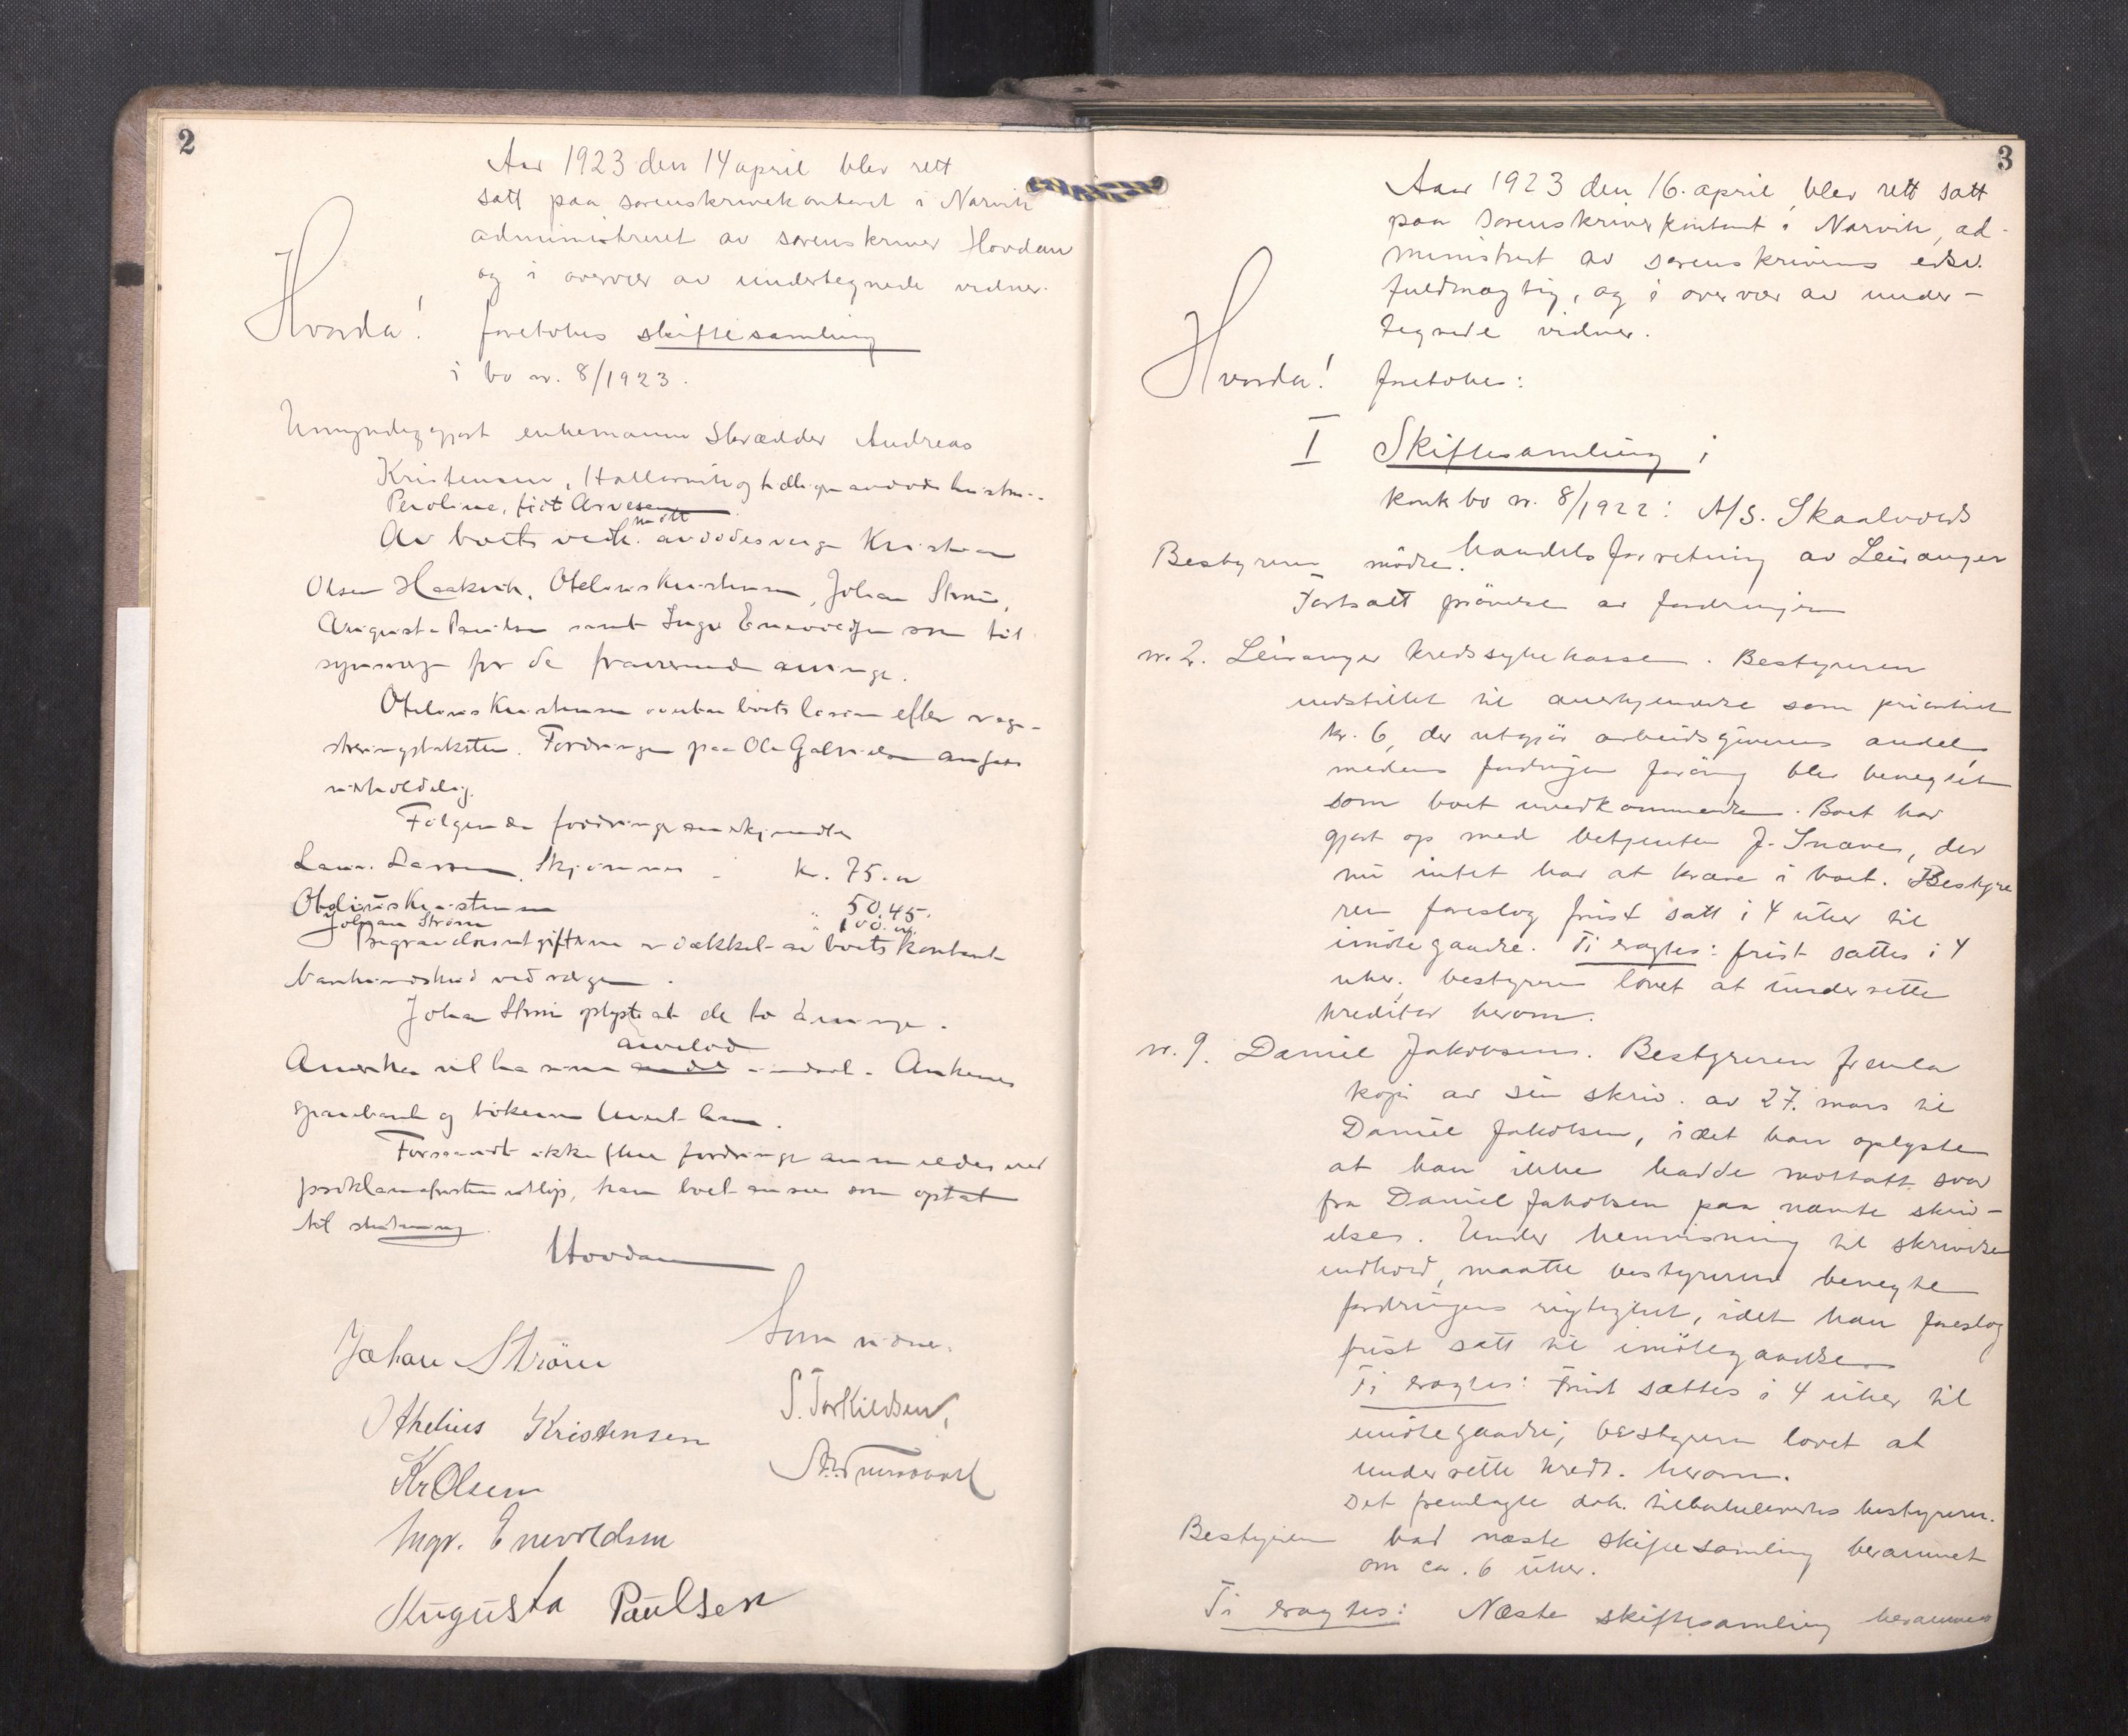 2
Aar 1923 den 14 april blev rett
satt paa sorenskriverkontoret i Narvik
administreret av sorenskriver Hovdan
og i overvær av undertegnede vidner.
Hvorda! foretokes skiftesamling
i bo nr. 8/1923.
Umyndiggjort enkemann skrædder Andreas
Kristensen, og tidligere avdøde hustru
Peroline, født Arvesen
Av boets vedk. møtt avdødes verge Kristian
Olsen Haakvik, Otelius Kristensen, Johan Strøm,
Augusta Paulsen samt Ingv. Enevoldsen som til
synsverge for de fraværende arvinger.
Otelius Kristensen overtar boets løsøre efter regi-
streringstaksten. Fordringen paa Ole anføres
uerholdelig.
Følgende fordringer anerkjendtes
Laur. Larsen, Skjomnes - kr. 75.00
Otelius Kristensen " 50.45.
Johan Strøm " 100.00.
Begravelsesutgiftene er dækket av boets kontant
beholdning ved vergen.
Johan Strøm oplyste at de to arvinger i
Amerika vil ha sine andel arvelod indsat i Ankenes
sparebank og bøkerne levert ham.
Forsaavidt ikke flere fordringer anmeldes ved
proklamafristens utløp, kan boet ansees som optat
til slutning.
Hovdan
Johan Strøm Som vidner:
Othelius Kristensen S. Torkildsen,
Kr Olsen
Ingv. Enevoldsen
Augusta Paulsen
3
Aar 1923 den 16. april blev rett satt
paa sorenskriverkontoret i Narvik, ad-
ministrert av sorenskriverens edsv.
fuldmægtig, og i overvær av under-
tegnede vidner.
Hvorda! foretokes:
I Skiftesamling i
konk bo nr. 8/1922: A/S. Skaalvolds
handelsforretning av Leiranger
Bestyreren mødte.
Fortsatt prøvelse av fordringer
nr. 2. Leiranger kredssykekasse. Bestyreren
indstillet til anerkjendelse som prioritert
kr. 6, der utgjør arbeidsgiverens andel,
medens fordringen forøvrig blev benegtet
som boet uvedkommende. Boet har
gjort op med betjenten J. Snaven, der
nu intet har at kræve i boet. Bestyre
ren foreslog frist satt i 4 uker til
imøtegaaelse. Ti eragtes: frist sattes i 4
uker; bestyreren lovet at underrette
kreditor herom.
nr. 9. Daniel Jakobsen. Bestyreren fremla
kopi av sin skriv. av 27. mars til
Daniel Jakobsen, idet han oplyste
at han ikke hadde mottatt svar
fra Daniel Jakobsen paa nævnte skriv-
elser. Under henvisning til skrivelsens
indhold, maatte bestyreren benegte
fordringens rigtighet, idet han foreslog
frist satt til imøtegaaelse
Ti eragtes: Frist sættes i 4 uker til
imøtegaaelse; bestyreren lovet at
underrette kredt. herom.
Det fremlagte dok. tilbakelevertes bestyreren.
Bestyreren bad næste skiftesamling berammet
om ca. 6 uker.
Ti eragtes: Næste skiftesamling berammes